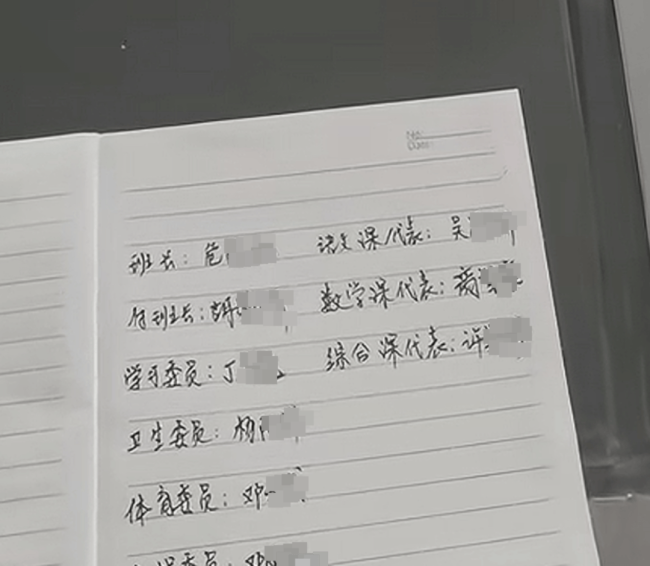 No:
Date:
班长：危
语文课代表：吴
付班长：胡
数学课代表：商
学习委员：丁
综合课代表：许
卫生委员：杨
体育委员：邓
委员：邓